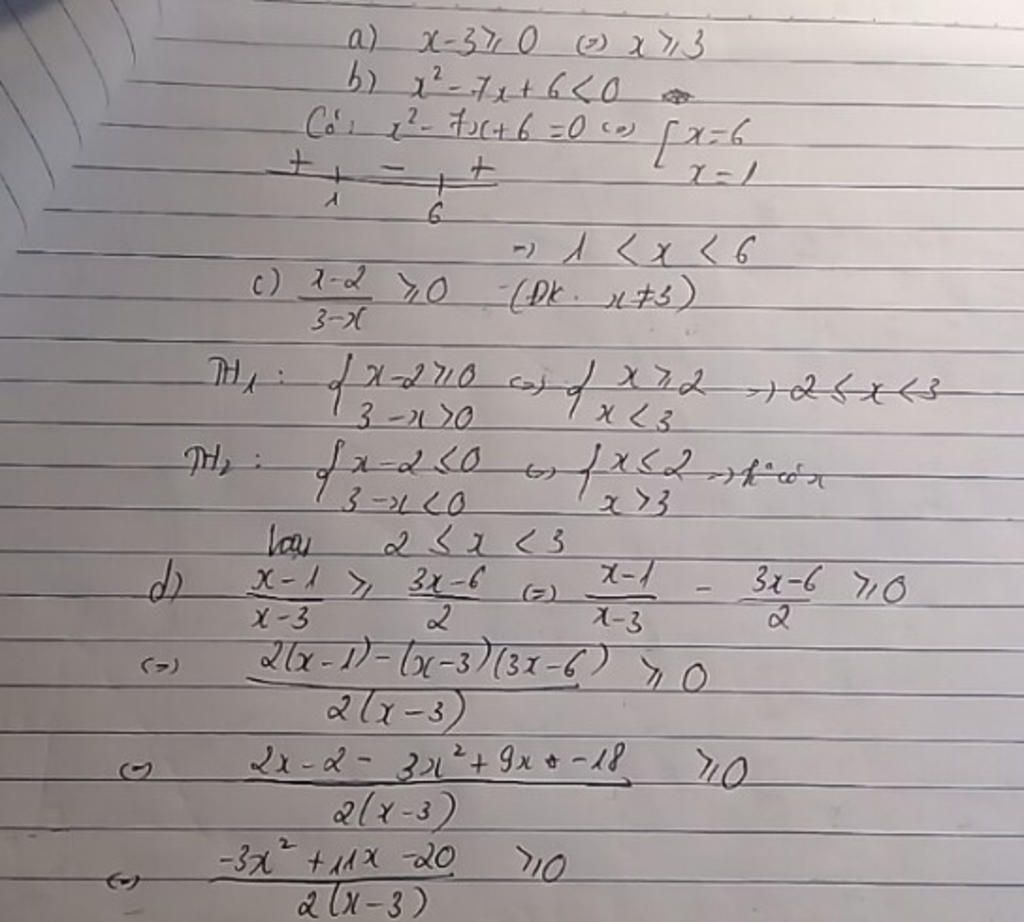 a) x-3 ⩾ 0 (=) x ⩾ 3
b) x² - 7x + 6 < 0
Có: x² - 7x + 6 = 0 (=) [ x = 6
x = 1
+ - +
1 6
=) 1 < x < 6
c) \frac{x-2}{3-x} ⩾ 0 (ĐK. x ≠ 3)
TH₁ : { x-2 ⩾ 0 (=) { x ⩾ 2 =) 2 ≤ x < 3
3-x > 0 x < 3
TH₂ : { x-2 ≤ 0 (=) { x ≤ 2 =) k° có x
3-x < 0 x > 3
2 ≤ x < 3
d) \frac{x-1}{x-3} ⩾ \frac{3x-6}{2} (=) \frac{x-1}{x-3} - \frac{3x-6}{2} ⩾ 0
(=) \frac{2(x-1)-(x-3)(3x-6)}{2(x-3)} ⩾ 0
(=) \frac{2x-2-3x²+9x-18}{2(x-3)} ⩾ 0
(=) \frac{-3x²+11x-20}{2(x-3)} ⩾ 0